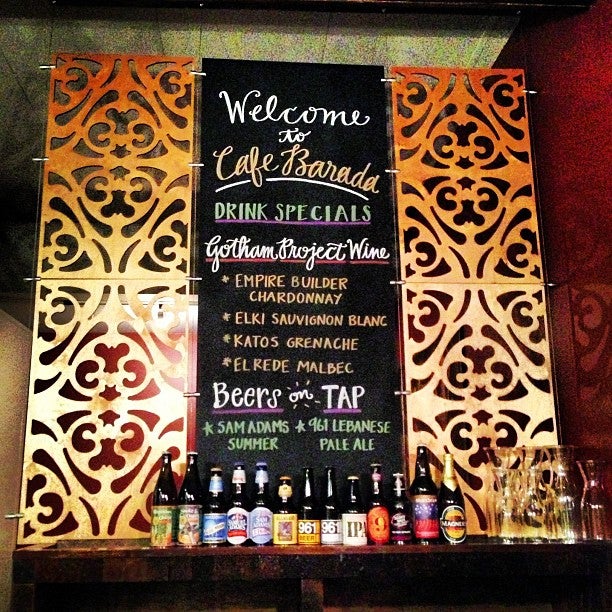 Welcome
to
Cafe Barada
DRINK SPECIALS
Gotham Project Wine
* EMPIRE BUILDER
CHARDONNAY
* ELKI SAUVIGNON BLANC
* KATOS GRENACHE
* EL REDE MALBEC
Beers on TAP
* SAM ADAMS * 961 LEBANESE
SUMMER PALE ALE
SAMUEL ADAMS
SAM ADAMS
961 BEER
961
IPA
9
MAGNERS